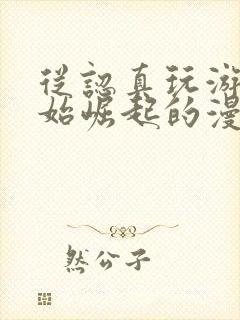 從認真玩游
始崛起的漫
然公子